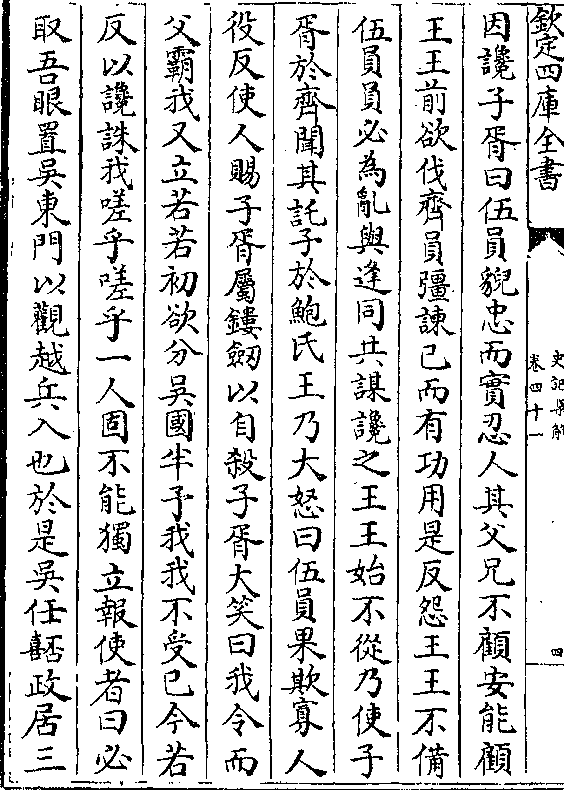 欽定四庫全書
史記集解
卷四十一
四
因讒子胥曰伍員貎忠而實忍人其父兄不顧安能顧
王王前欲伐齊員彊諫已而有功用是反怨王王不備
伍員員必為亂與逢同共謀讒之王王始不從乃使子
胥於齊聞其託子於鮑氏王乃大怒曰伍員果欺寡人
役反使人賜子胥屬鏤劒以自殺子胥大笑曰我令而
父霸我又立若若初欲分吳國半予我我不受已今若
反以讒誅我嗟乎嗟乎一人固不能獨立報使者曰必
取吾眼置吳東門以觀越兵入也於是吳任嚭政居三